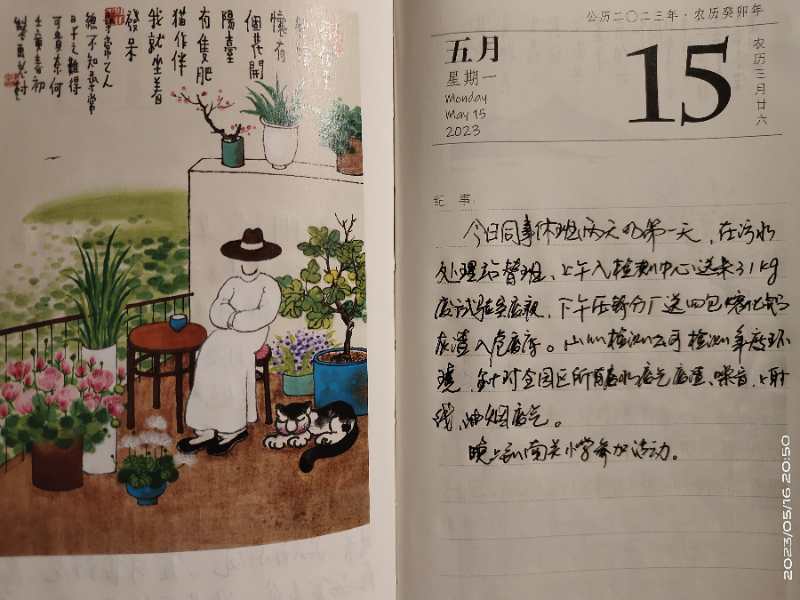 懷有
個花開
陽臺
有隻肥
猫作伴
我就坐着
發呆
日子之難得
可貴奈何
公历二〇二三年·农历癸卯年
五月
星期一
Monday
May 15
2023
15
农历三月廿六
纪 事
今日同事休班两天的第一天,在污水
处理站替班,上午入检测中心送来31kg
废试验室废液,下午压铸分厂送四包熔化部
灰渣入危废库。公司检测年度环
境,针对全园区所有废水废气废渣、噪音、射
线、油烟废气。
晚上到南关小学参加活动。
2023/05/16 20:50